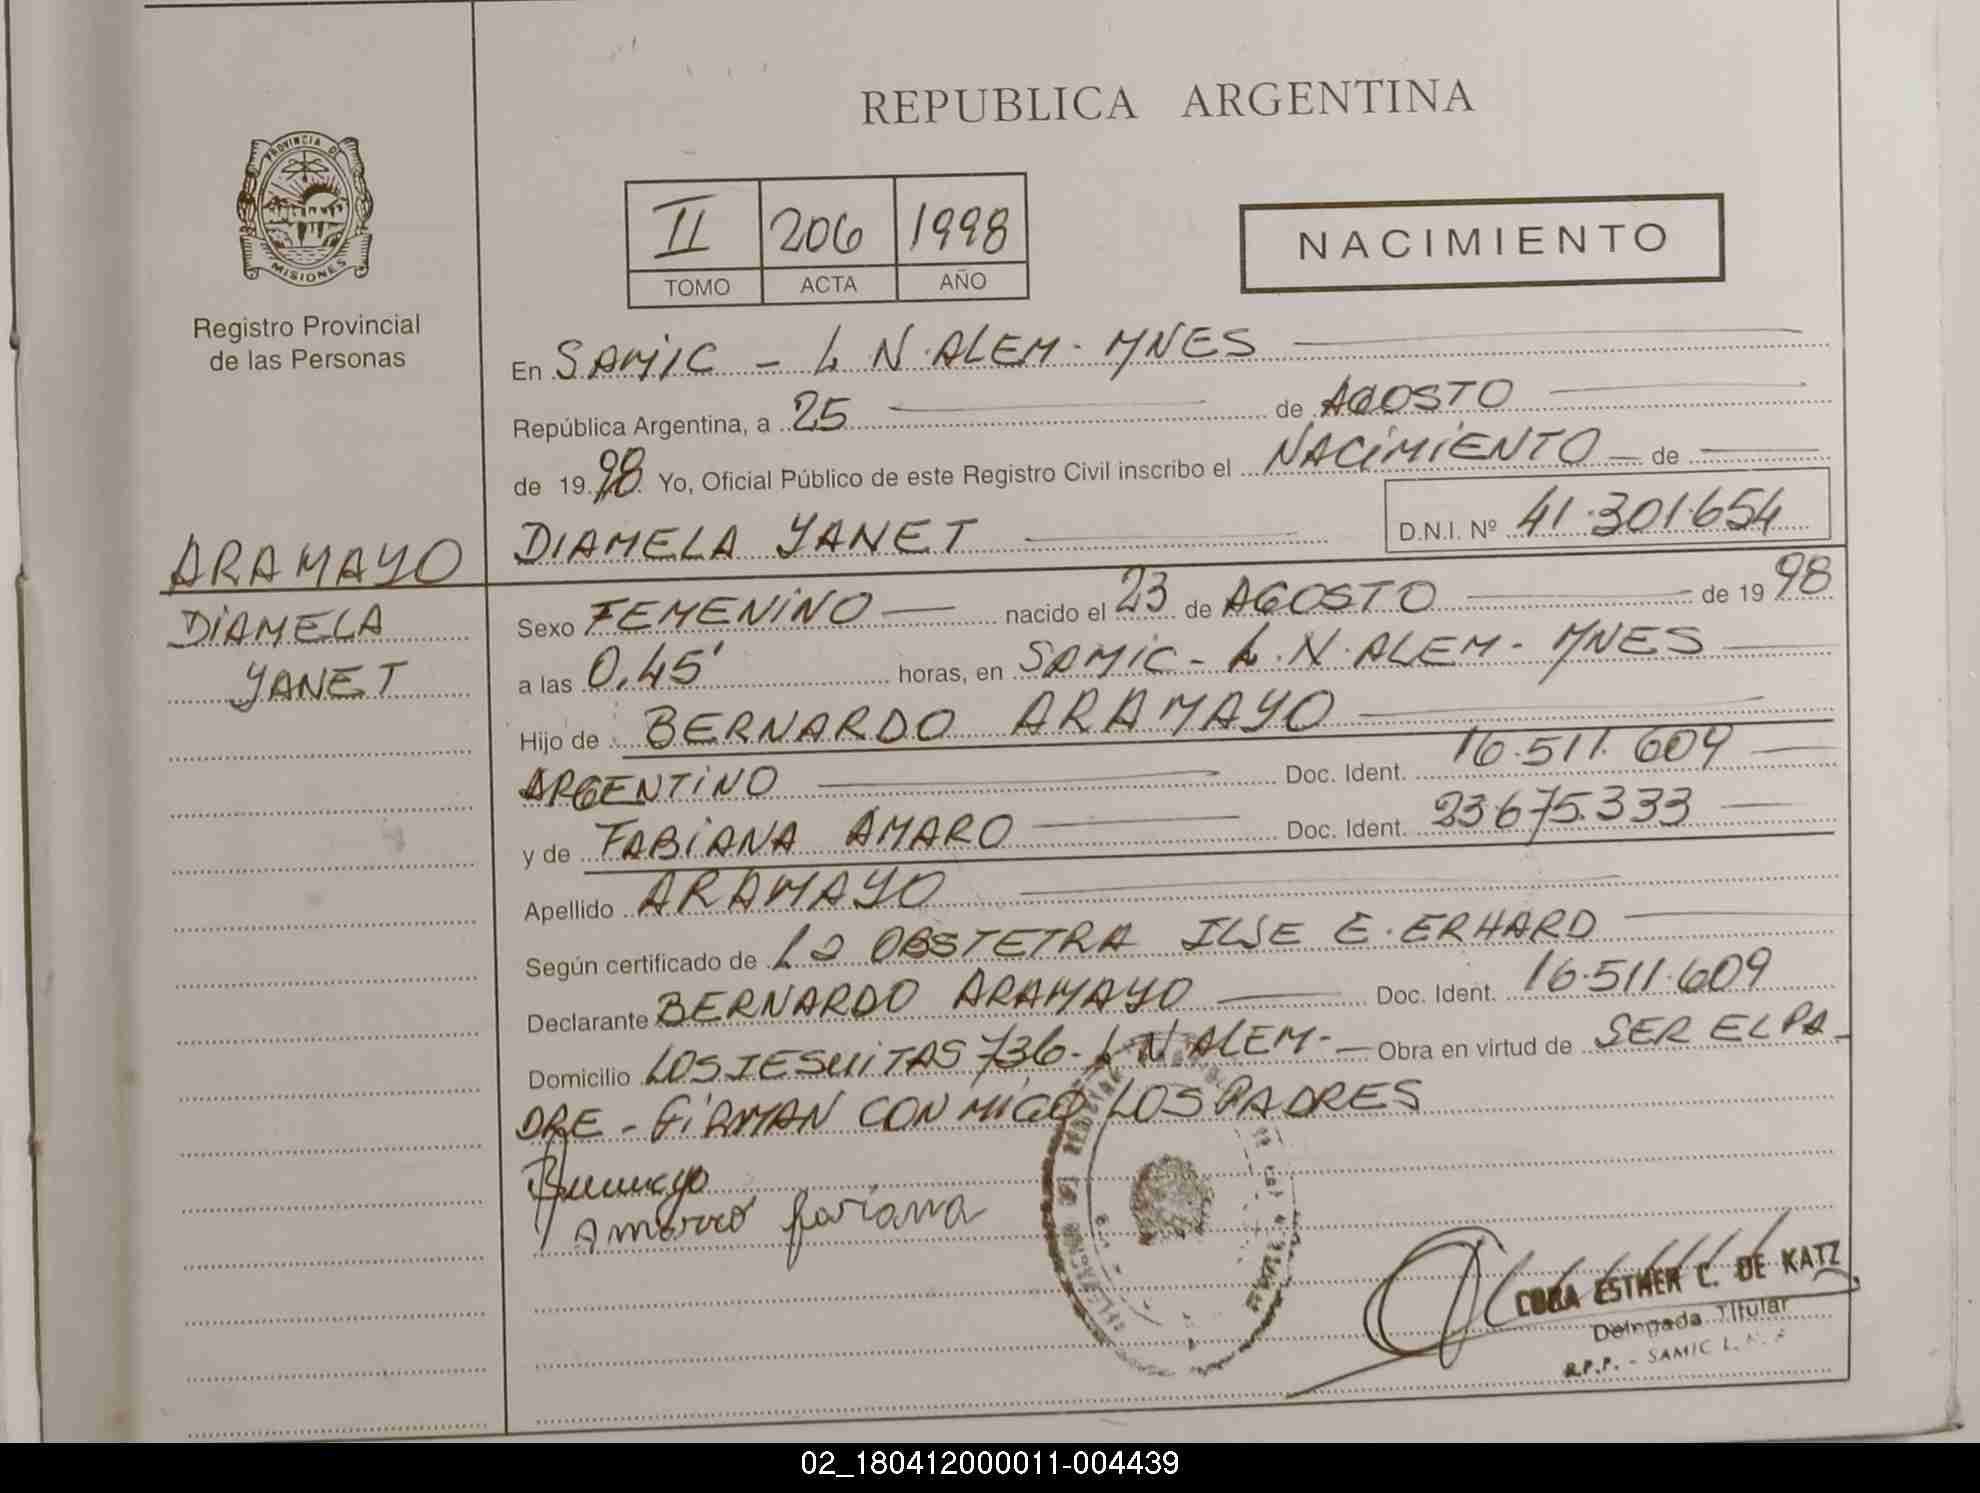 REPUBLICA ARGENTINA
PROVINCIA DE
MISIONES
Registro Provincial
de las Personas
II 206 1998
TOMO ACTA AÑO
NACIMIENTO
En SAMIC - L N. ALEM - MNES
República Argentina, a 25 de AGOSTO
de 1998 Yo, Oficial Público de este Registro Civil inscribo el NACIMIENTO de
DIAMELA YANET D.N.I. Nº 41.301.654
ARAMAYO
DIAMELA
YANET
Sexo FEMENINO nacido el 23 de AGOSTO de 1998
a las 0,45' horas, en SAMIC - L.N. ALEM - MNES
Hijo de BERNARDO ARAMAYO
ARGENTINO Doc. Ident. 16.511.609
y de FABIANA AMARO Doc. Ident. 23675.333
Apellido ARAMAYO
Según certificado de La OBSTETRA ILSE E. ERHARD
Declarante BERNARDO ARAMAYO Doc. Ident. 16.511.609
Domicilio LOS JESUITAS 736 - L N ALEM - Obra en virtud de SER EL PA-
DRE - FIRMAN CON MIGO LOS PADRES
COBA ESTHER C. DE KATZ
Delegada Titular
R.P.P. - SAMIC L. N. A
02_180412000011-004439